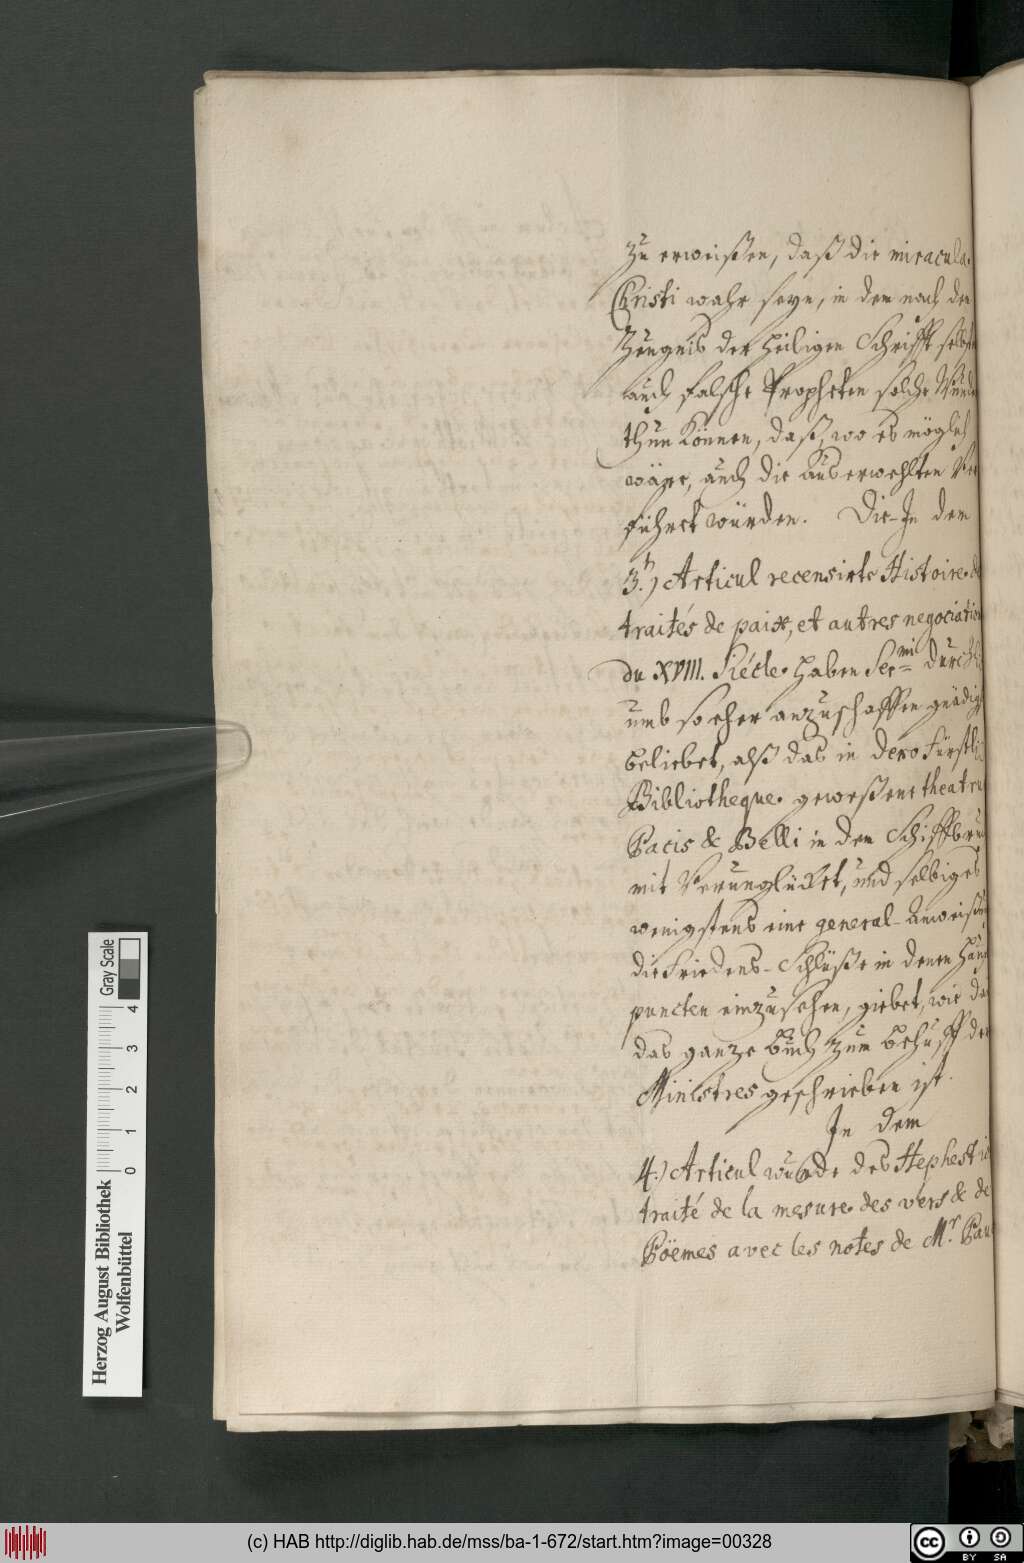 zu erweißen, daß die miracula
Christi wahr seyn, in dem nach dem
Zeugnis der heiligen Schrifft selbst
auch falsche Propheten solche Wunder
thun können, daß, wo es möglich
wäre, auch die auserwehlten Ver
führet würden. Die In dem
3.) Articul recensirte Histoire de
traités de paix, et autres negociation
du XVIII. Siécle haben Ser~mi~ Durchl
umb so eher anzuschaffen gnädigst
beliebet, alß das in dero Fürstli
Bibliotheque geweßene theatru
Pacis & Belli in dem Schiffbruch
mit Verunglücket, und selbiges
wenigstens eine general-Anweißu
die Friedens-Schlüße in denen Haupt
puncten einzusehen, giebet, wie da
das ganze Buch zum behuff der
Ministres geschrieben ist.
In dem
4.) Articul wurde des Hephesti
traité de la mesure des vers & de
Pöemes avec les notes de Mr. Pau
Herzog August Bibliothek
Wolfenbüttel
0 1 2 3 4
Gray Scale
(c) HAB http://diglib.hab.de/mss/ba-1-672/start.htm?image=00328
cc BY SA